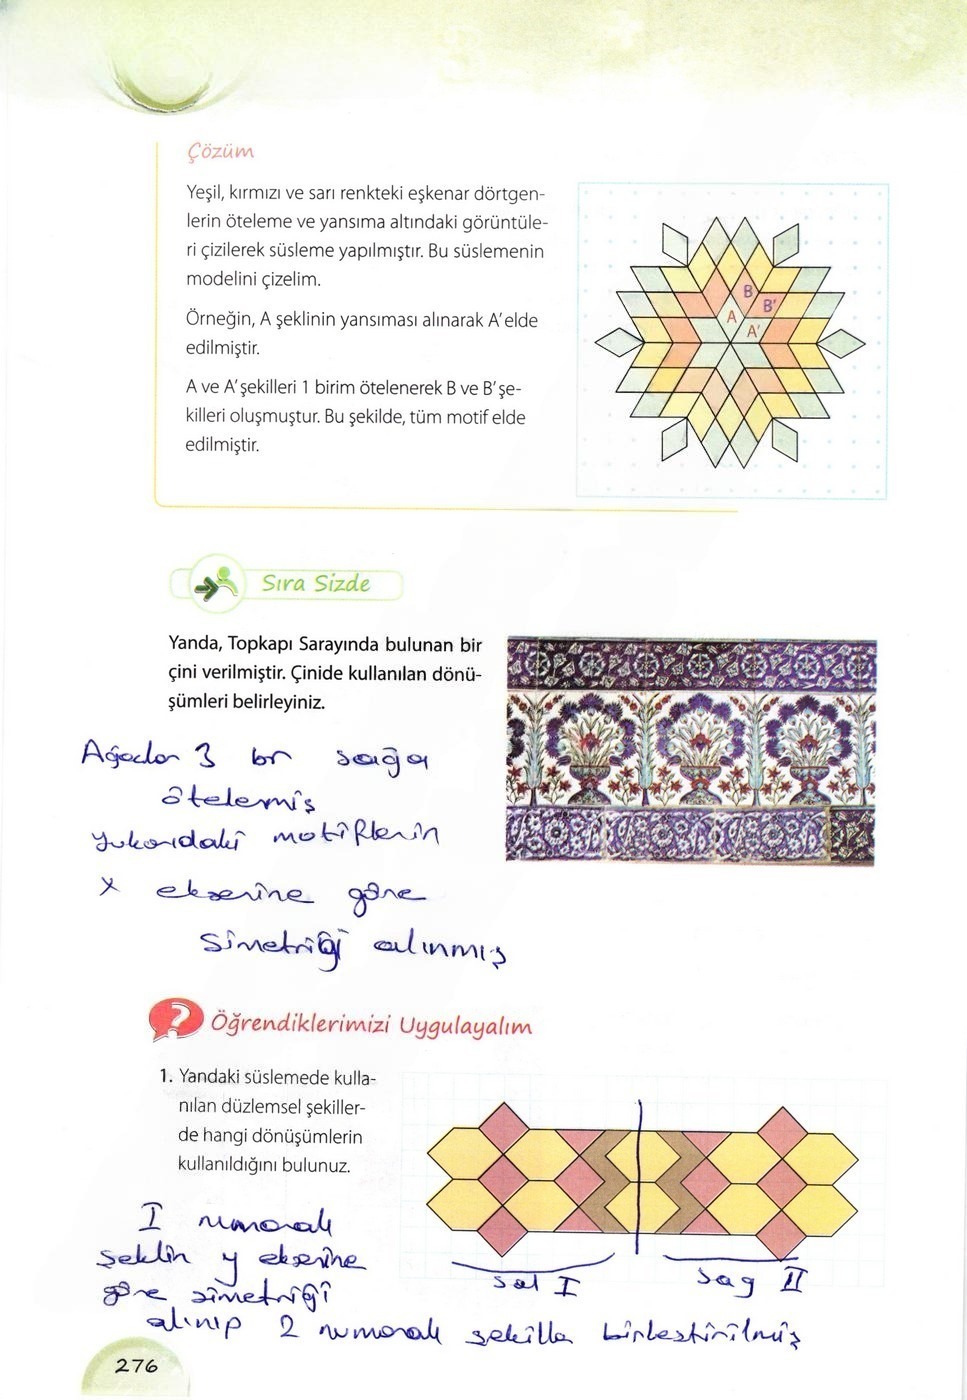 Çözüm
Yeşil, kırmızı ve sarı renkteki eşkenar dörtgen-
lerin öteleme ve yansıma altındaki görüntüle-
ri çizilerek süsleme yapılmıştır. Bu süslemenin
modelini çizelim.
Örneğin, A şeklinin yansıması alınarak A' elde
edilmiştir.
A ve A' şekilleri 1 birim ötelenerek B ve B' şe-
killeri oluşmuştur. Bu şekilde, tüm motif elde
edilmiştir.
B
B'
A
A'
Sıra Sizde
Yanda, Topkapı Sarayında bulunan bir
çini verilmiştir. Çinide kullanılan dönü-
şümleri belirleyiniz.
Ağaclar 3 br sağa
ötelemiş
yukarıdaki motiflerin
x eksenine göre
simetriği alınmış
?
Öğrendiklerimizi Uygulayalım
1. Yandaki süslemede kulla-
nılan düzlemsel şekiller-
de hangi dönüşümlerin
kullanıldığını bulunuz.
I numaralı
şeklin y eksenine
göre simetriği
alınıp 2 numaralı şekille birleştirilmiş
sol I
sag II
276